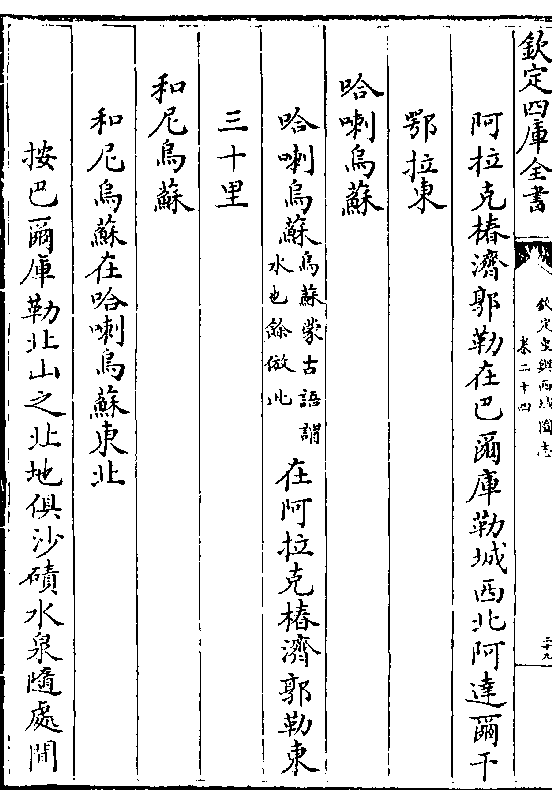 欽定四庫全書
欽定皇輿西域圖志
卷二十四
二十九
阿拉克椿濟郭勒在巴爾庫勒城西北阿達爾干
鄂拉東
哈喇烏蘇
哈喇烏蘇烏蘇蒙古語謂水也餘倣此在阿拉克椿濟郭勒東
三十里
和尼烏蘇
和尼烏蘇在哈喇烏蘇東北
按巴爾庫勒北山之北地俱沙磧水泉隨處間